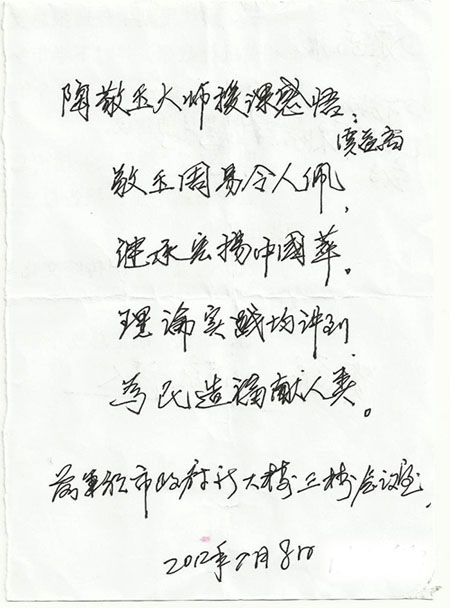 陶敬玉大师授课感悟：
敬玉周易令人佩，
继承宏揚中國華。
理论实践均讲到
为民造福献人类。
市政府行大楼三楼会议室，
2012年 月8日